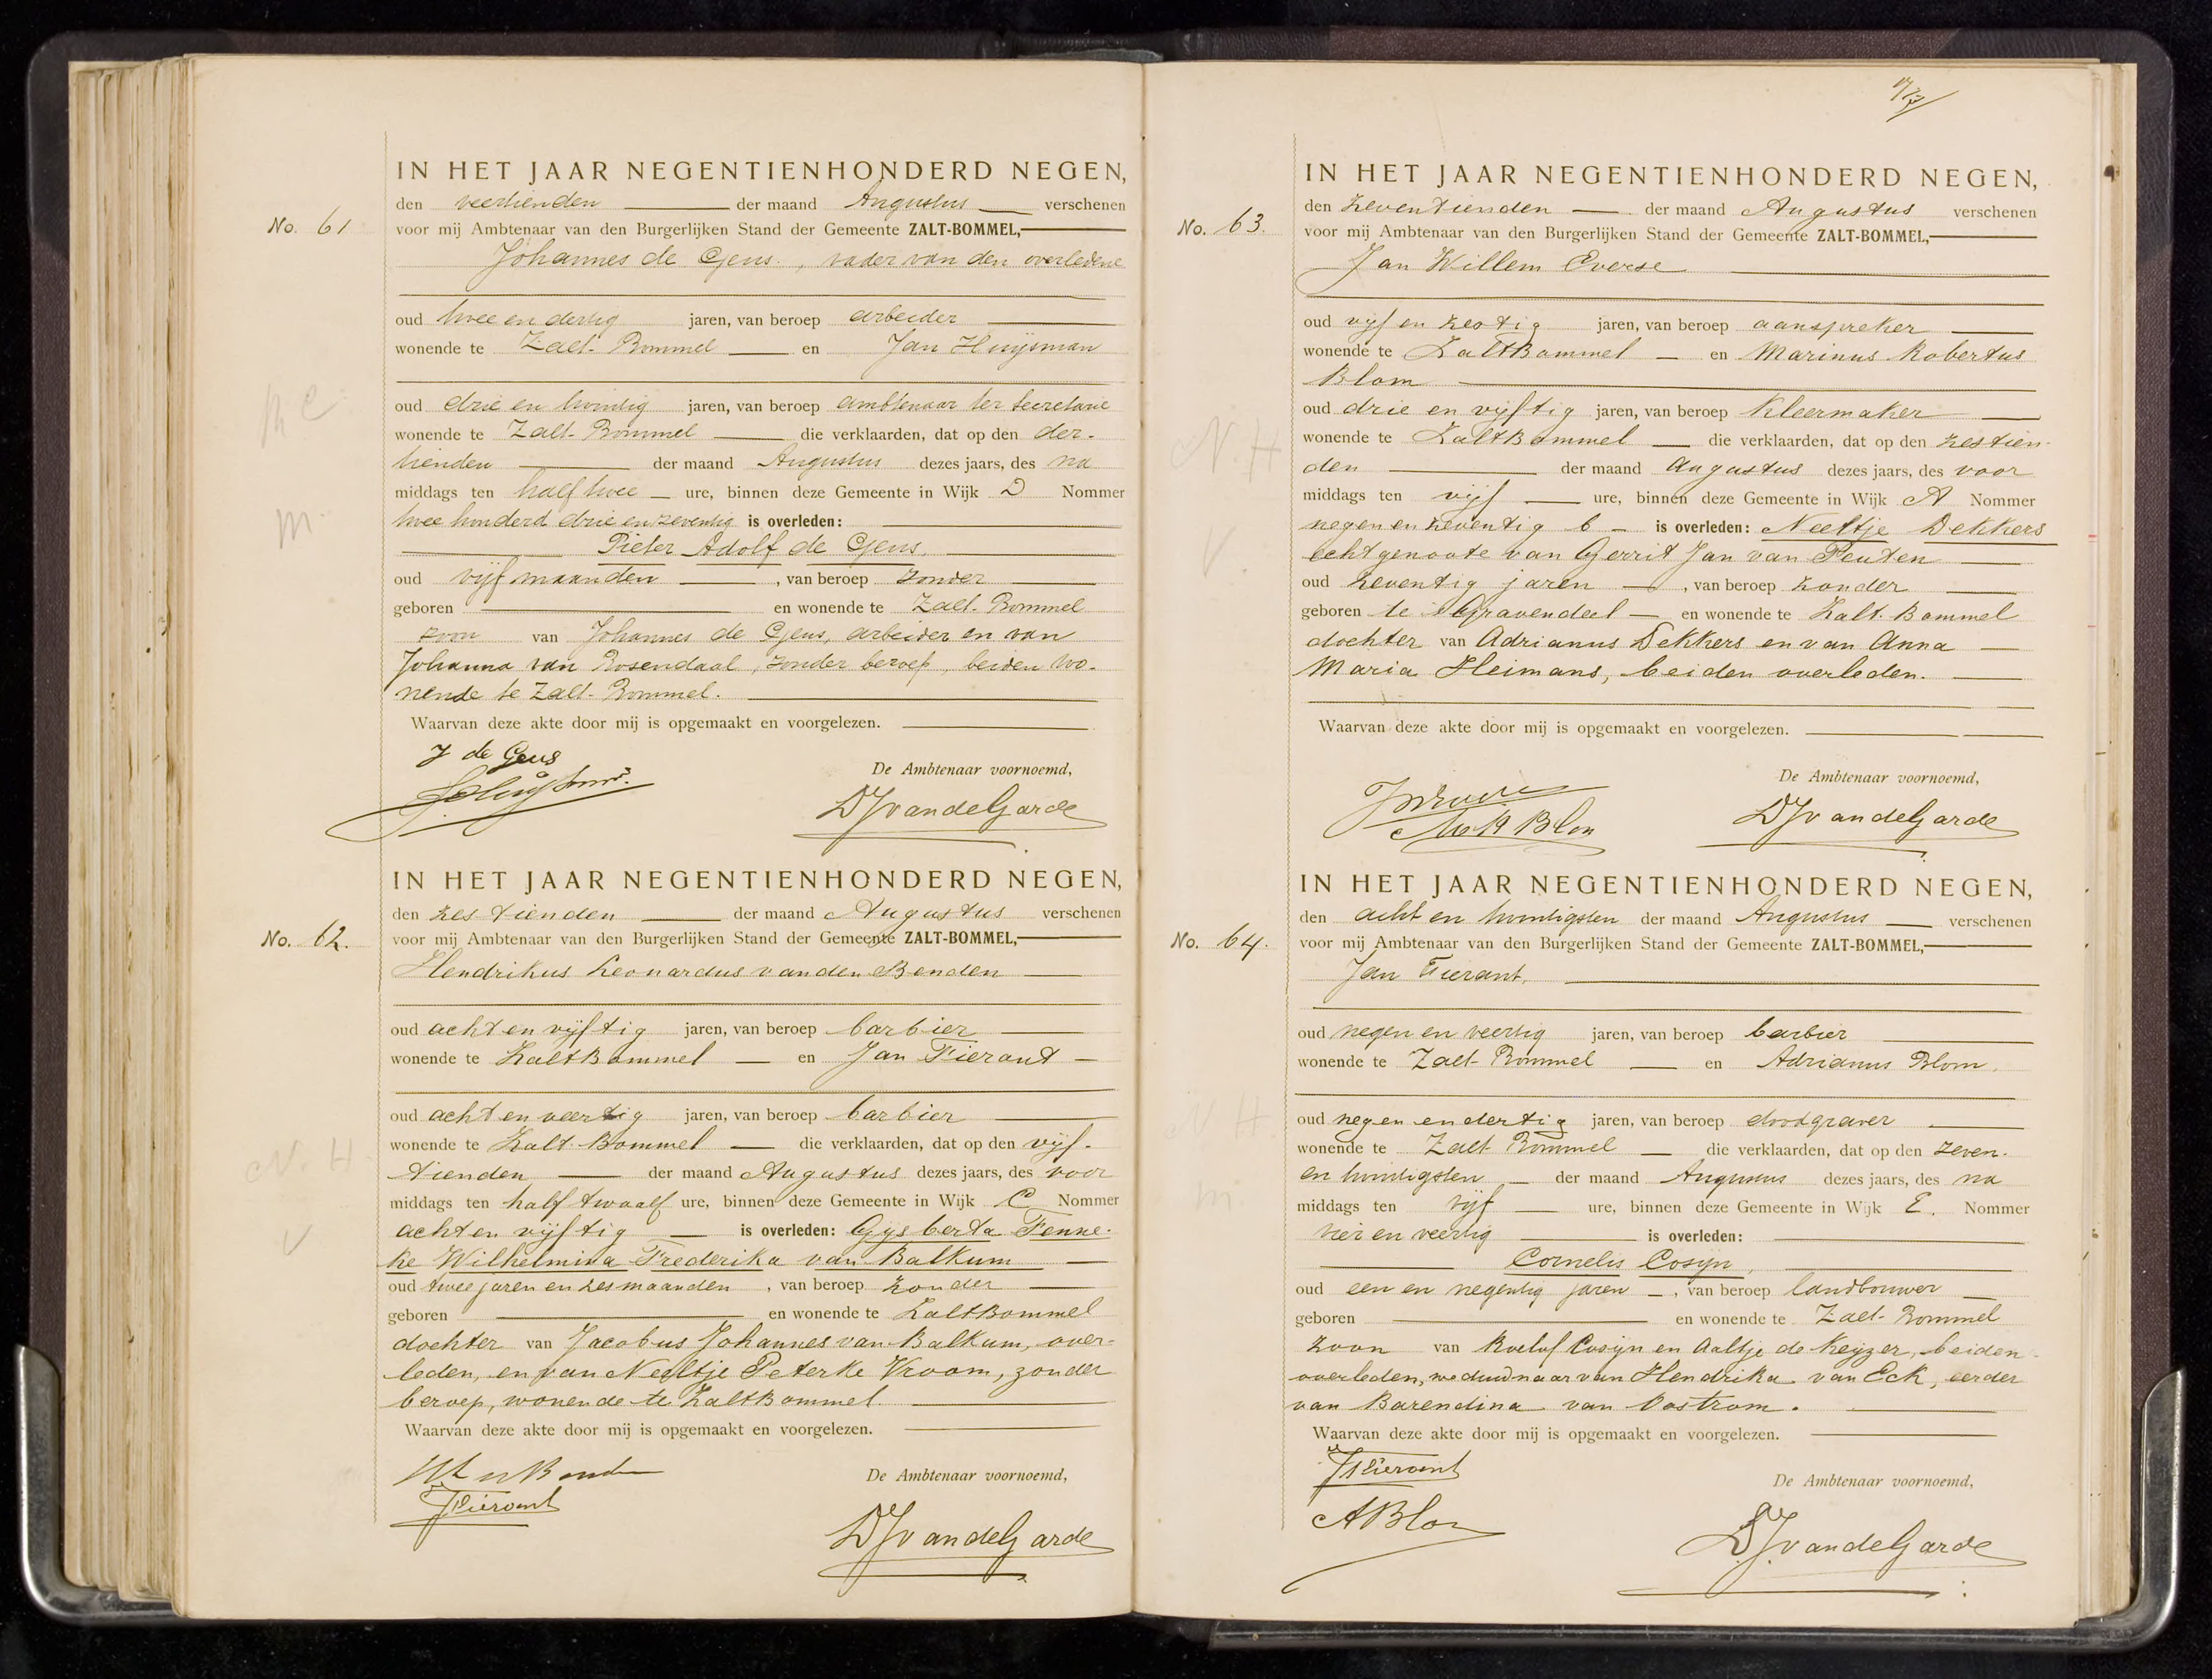 IN HET JAAR NEGENTIENHONDERD NEGEN,
den veertienden der maand Augustus verschenen
No. 61 voor mij Ambtenaar van den Burgerlijken Stand der Gemeente ZALT-BOMMEL,
Johannes de Geus, vader van den overledene
oud twee en dertig jaren, van beroep arbeider
wonende te Zalt-Bommel en Jan Huijsman
oud drie en twintig jaren, van beroep ambtenaar ter secretarie
wonende te Zalt-Bommel die verklaarden, dat op den der-
tienden der maand Augustus dezes jaars, des na
middags ten half twee ure, binnen deze Gemeente in Wijk D Nommer
twee honderd drie en zeventig is overleden:
Pieter Adolf de Geus.
oud vijf maanden, van beroep zonder
geboren en wonende te Zalt-Bommel
zoon van Johannes de Geus, arbeider en van
Johanna van Rosendaal, zonder beroep, beiden wo-
nende te Zalt-Bommel.
Waarvan deze akte door mij is opgemaakt en voorgelezen.
J de Geus
De Ambtenaar voornoemd,
DJvandeGarde
IN HET JAAR NEGENTIENHONDERD NEGEN,
den zestienden der maand Augustus verschenen
No. 62. voor mij Ambtenaar van den Burgerlijken Stand der Gemeente ZALT-BOMMEL,
Hendrikus Leonardus van den Benden
oud acht en vijftig jaren, van beroep barbier
wonende te ZaltBommel en Jan Fierant
oud acht en veertig jaren, van beroep barbier
wonende te Zalt-Bommel die verklaarden, dat op den vijf-
tienden der maand Augustus dezes jaars, des voor
middags ten half twaalf ure, binnen deze Gemeente in Wijk C Nommer
acht en vijftig is overleden: Gijsberta Fenne-
ke Wilhelmina Frederika van Balkum
oud twee jaren en zes maanden, van beroep zonder
geboren en wonende te ZaltBommel
dochter van Jacobus Johannes van Balkum, over-
leden, en van Neeltje Peterke Vroom, zonder
beroep, wonende te ZaltBommel.
Waarvan deze akte door mij is opgemaakt en voorgelezen.
JFierant
De Ambtenaar voornoemd,
DJvandeGarde
IN HET JAAR NEGENTIENHONDERD NEGEN,
den zeventienden der maand Augustus verschenen
No. 63. voor mij Ambtenaar van den Burgerlijken Stand der Gemeente ZALT-BOMMEL,
Jan Willem Everse
oud vijf en zestig jaren, van beroep aanspreker
wonende te ZaltBommel en Marinus Robertus
Blom
oud drie en vijftig jaren, van beroep kleermaker
wonende te ZaltBommel die verklaarden, dat op den zestien-
den der maand Augustus dezes jaars, des voor
middags ten vijf ure, binnen deze Gemeente in Wijk A Nommer
negen en zeventig b is overleden: Neeltje Dekkers
echtgenoote van Gerrit Jan van Peuten
oud zeventig jaren, van beroep zonder
geboren te 's Gravendeel en wonende te Zalt-Bommel
dochter van Adrianus Dekkers en van Anna
Maria Heimans, beiden overleden.
Waarvan deze akte door mij is opgemaakt en voorgelezen.
De Ambtenaar voornoemd,
DJvandeGarde
IN HET JAAR NEGENTIENHONDERD NEGEN,
den acht en twintigsten der maand Augustus verschenen
No. 64. voor mij Ambtenaar van den Burgerlijken Stand der Gemeente ZALT-BOMMEL,
Jan Fierant,
oud negen en veertig jaren, van beroep barbier
wonende te Zalt-Bommel en Adrianus Blom,
oud negen en dertig jaren, van beroep doodgraver
wonende te Zalt-Bommel die verklaarden, dat op den zeven-
en twintigsten der maand Augustus dezes jaars, des na
middags ten vijf ure, binnen deze Gemeente in Wijk E. Nommer
vier en veertig is overleden:
Cornelis Cosijn,
oud een en negentig jaren, van beroep landbouwer
geboren en wonende te Zalt-Bommel
zoon van Roelof Cosijn en Aaltje de Keijzer, beiden
overleden, weduwnaar van Hendrika van Eck, eerder
van Barendina van Oostrom.
Waarvan deze akte door mij is opgemaakt en voorgelezen.
JFierant
De Ambtenaar voornoemd,
ABlom
DJvandeGarde